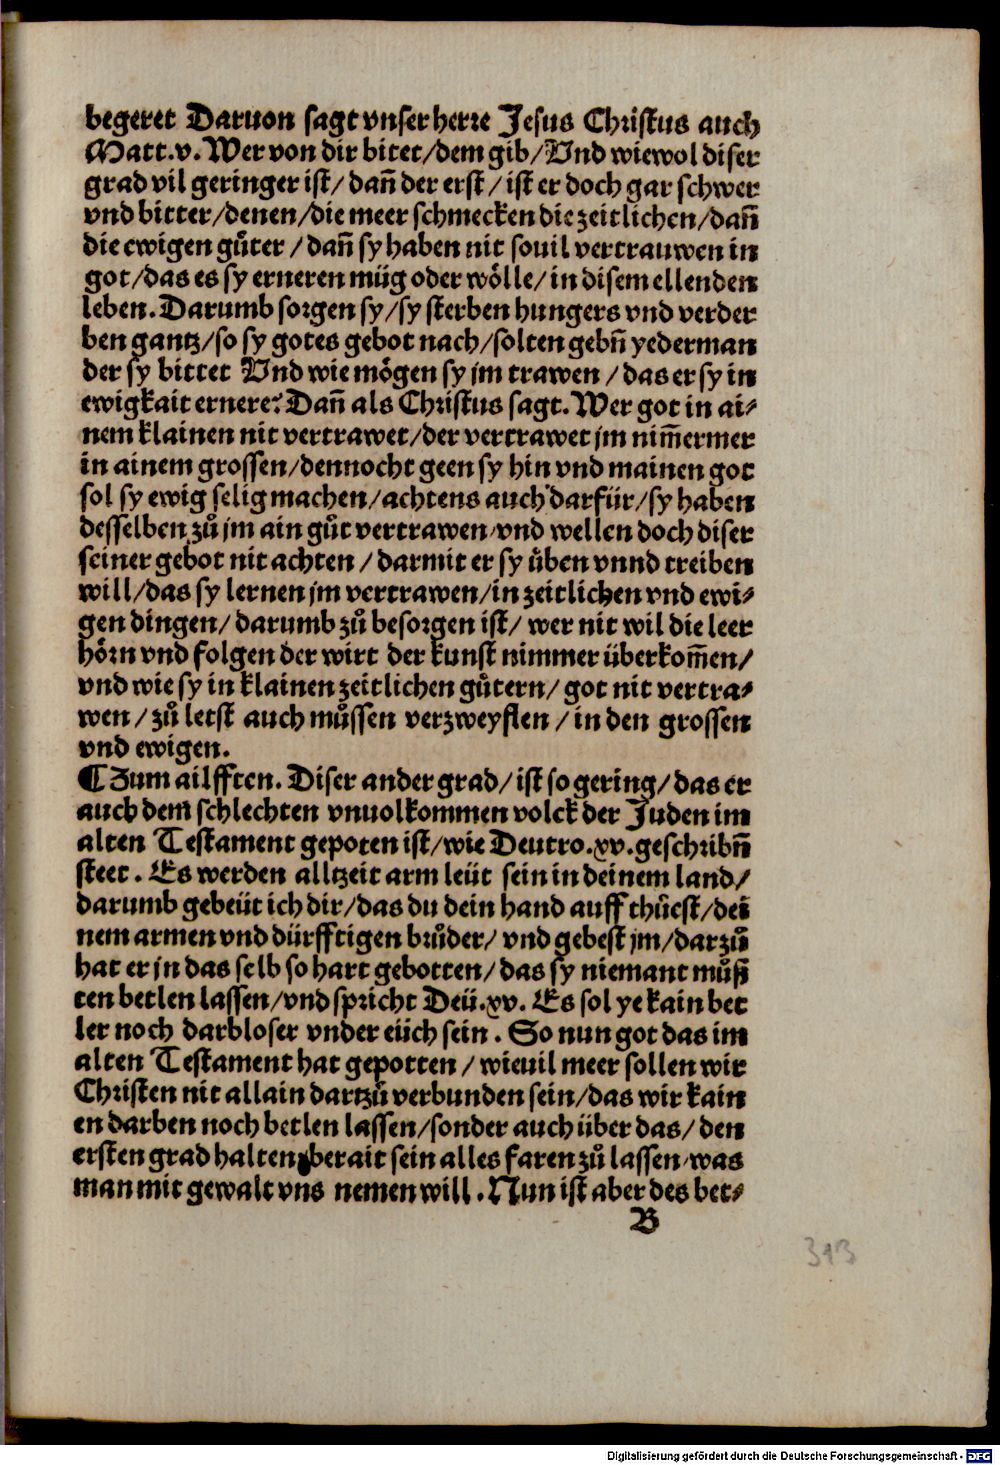 begeret Daruon sagt vnser herre Jesus Christus auch
Matt.v. Wer von dir bitet/dem gib/Vnd wiewol diser
grad vil geringer ist/ dañ der erst/ ist er doch gar schwer
vnd bitter/denen/die meer schmecken die zeitlichen/dañ
die ewigen gůter/ dañ sy haben nit souil vertrauwen in
got/das es sy erneren müg oder wölle/in disem ellenden
leben. Darumb sorgen sy/sy sterben hungers vnd verder
ben gantz/so sy gotes gebot nach/solten gebñ yederman
der sy bittet Vnd wie mögen sy jm trawen/das er sy in
ewigkait ernere? Dañ als Christus sagt. Wer got in ai⸗
nem klainen nit vertrawet/der vertrawet jm nim̃ermer
in ainem grossen/dennocht geen sy hin vnd mainen got
sol sy ewig selig machen/achtens auch darfür/sy haben
desselben zů jm ain gůt vertrawen/vnd wellen doch diser
seiner gebot nit achten/ darmit er sy ůben vnnd treiben
will/das sy lernen jm vertrawen/in zeitlichen vnd ewi⸗
gen dingen/ darumb zů besorgen ist/ wer nit wil die leer
hörn vnd folgen der wirt der kunst nimmer überkom̃en/
vnd wie sy in klainen zeitlichen gůtern/ got nit vertra⸗
wen/zů letst auch můssen verzweyflen/in den grossen
vnd ewigen.
¶Zum ailfften. Diser ander grad/ist so gering/das er
auch dem schlechten vnuolkommen volck der Juden im
alten Testament gepoten ist/wie Deutro.xv.geschribñ
steet. Es werden alltzeit arm leüt sein in deinem land/
darumb gebeüt ich dir/das du dein hand auff thůest/dei
nem armen vnd dürfftigen brůder/ vnd gebest jm/darzů
hat er jn das selb so hart gebotten/das sy niemant můß
ten betlen lassen/vnd spricht Deü.xv. Es sol ye kain bet
ler noch darbloser vnder eüch sein. So nun got das im
alten Testament hat gepotten/wieuil meer sollen wir
Christen nit allain dartzů verbunden sein/das wir kain
en darben noch betlen lassen/sonder auch über das/den
ersten grad halten berait sein alles faren zů lassen/was
man mit gewalt vns nemen will. Nun ist aber des bet⸗
B
313
Digitalisierung gefördert durch die Deutsche Forschungsgemeinschaft - DFG